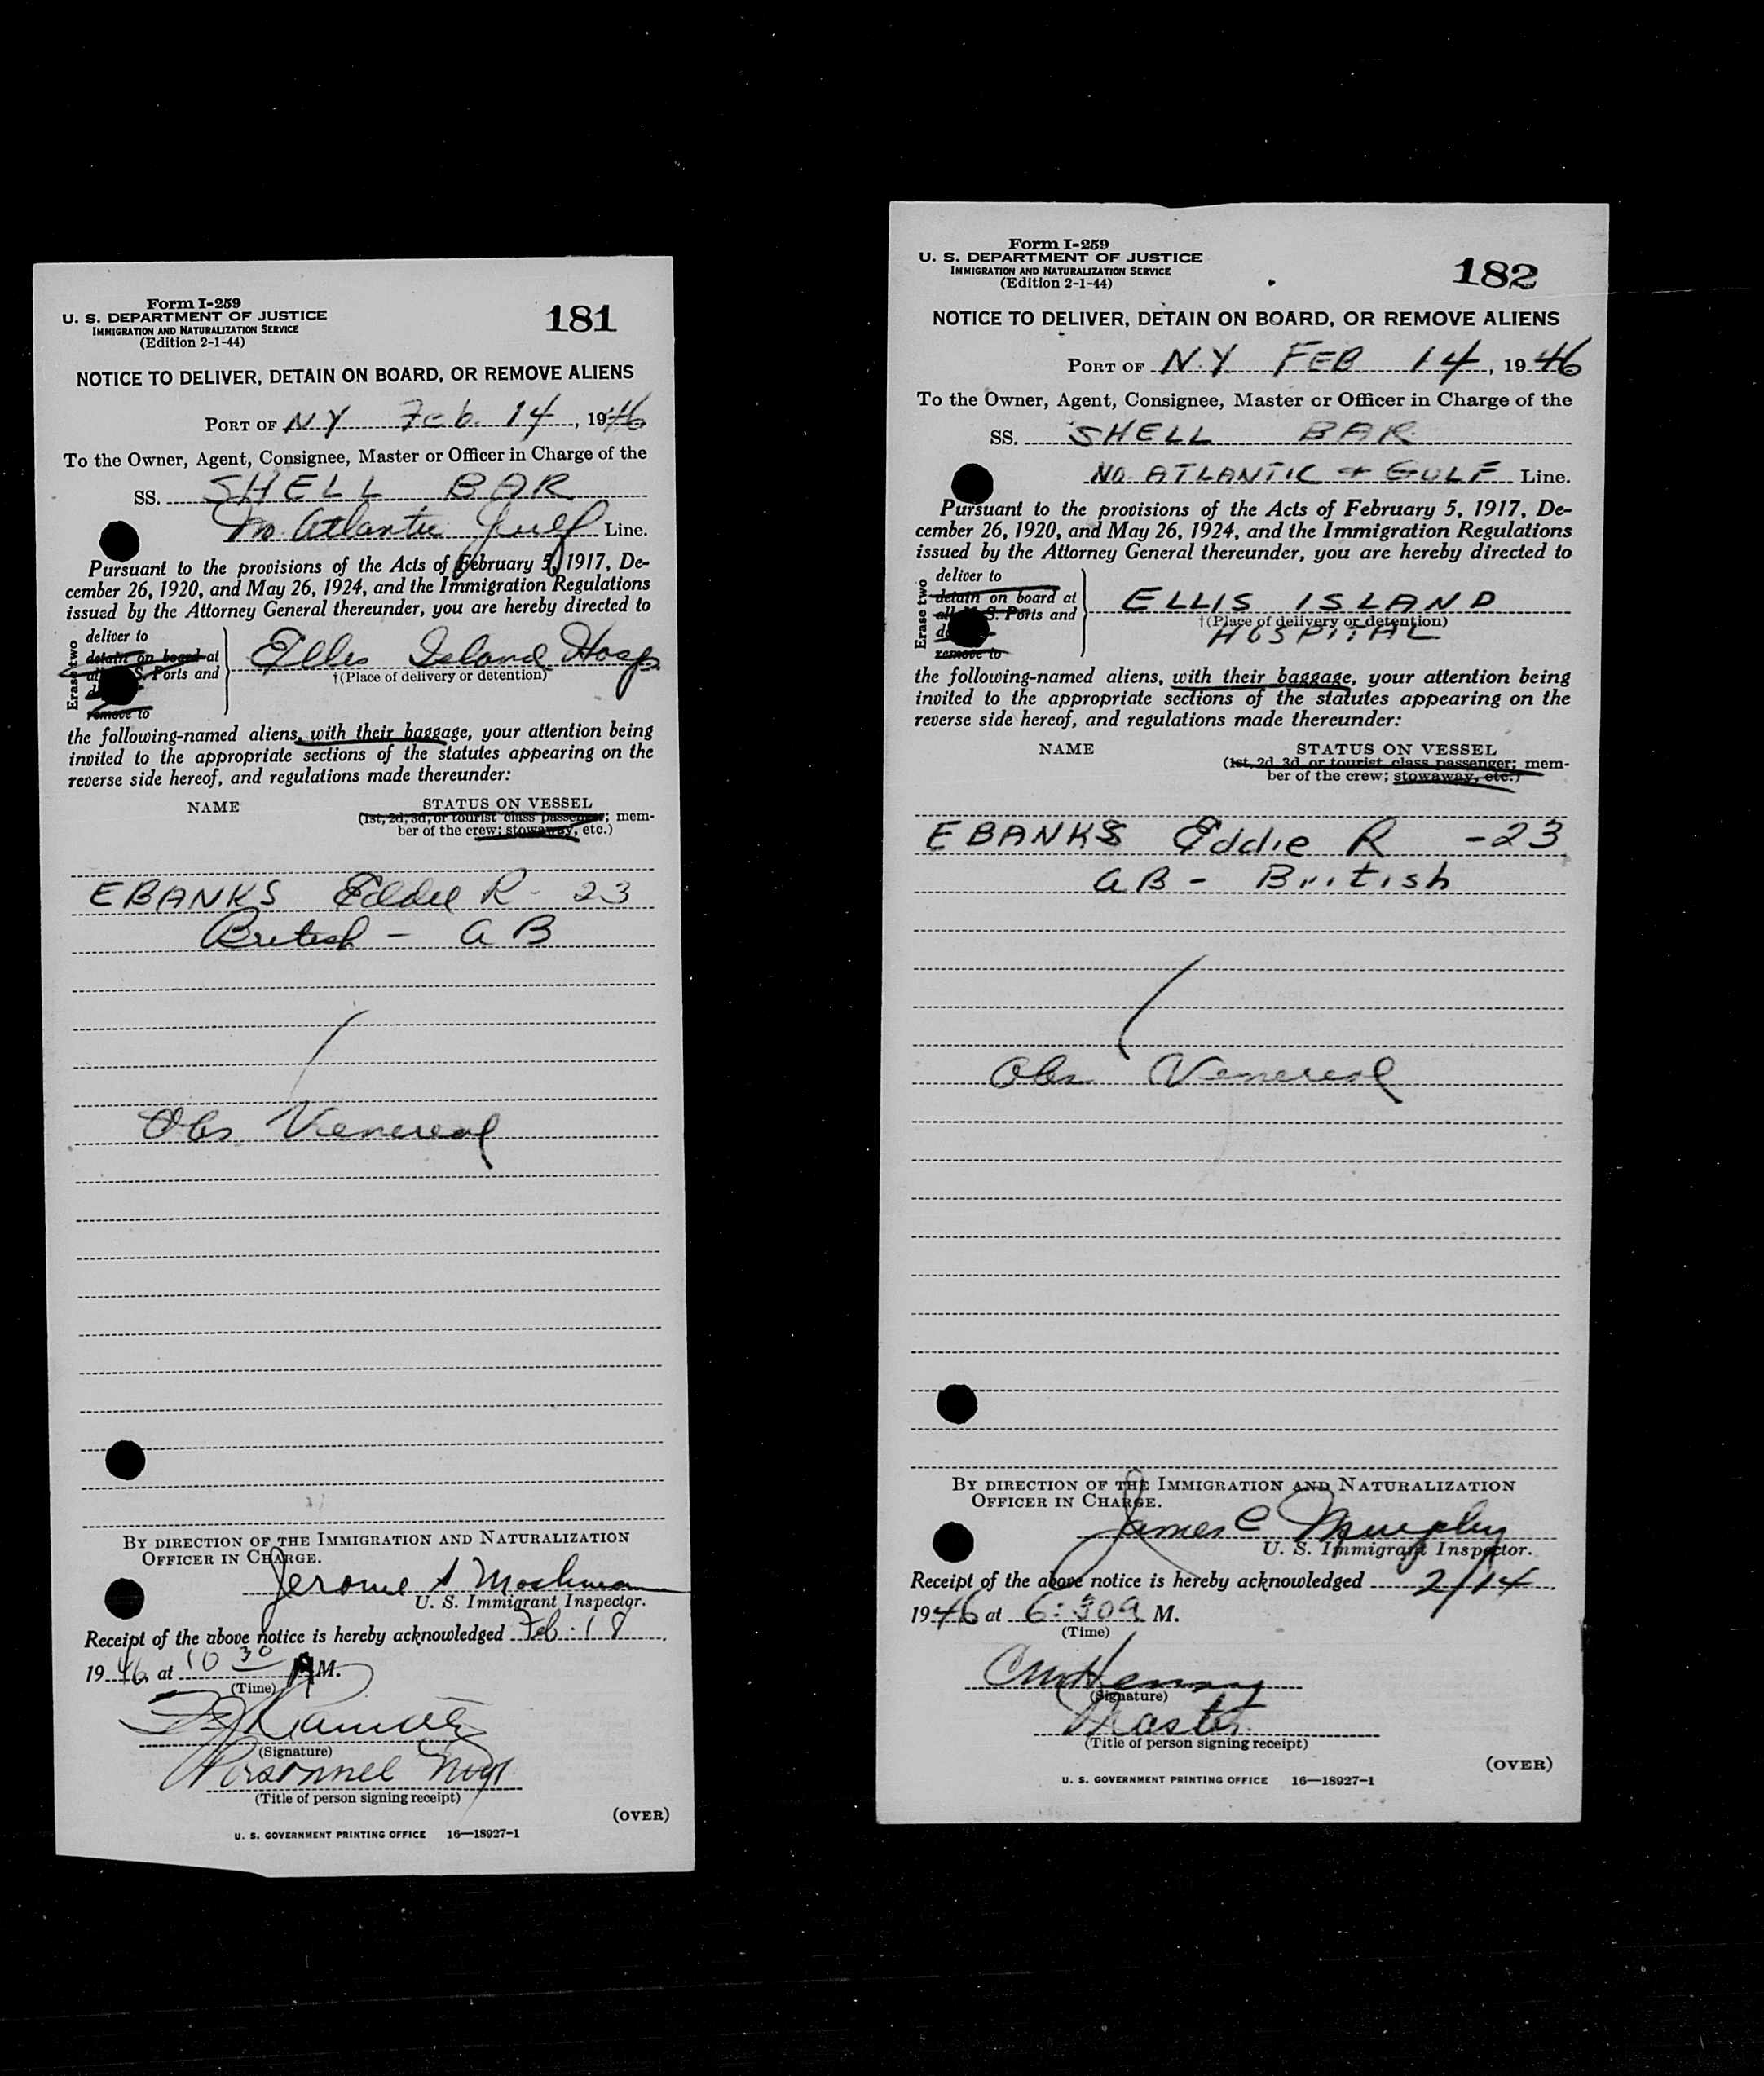 Form I-259
U. S. DEPARTMENT OF JUSTICE
IMMIGRATION AND NATURALIZATION SERVICE
(Edition 2-1-44)
181
NOTICE TO DELIVER, DETAIN ON BOARD, OR REMOVE ALIENS
PORT OF NY Feb. 14, 1946
To the Owner, Agent, Consignee, Master or Officer in Charge of the
SS. SHELL BAR
No. Atlantic Gulf Line.
Pursuant to the provisions of the Acts of February 5, 1917, De-
cember 26, 1920, and May 26, 1924, and the Immigration Regulations
issued by the Attorney General thereunder, you are hereby directed to
Erase two
deliver to
detain on board at
S. Ports and
remove to
Ellis Island Hosp
†(Place of delivery or detention)
the following-named aliens, with their baggage, your attention being
invited to the appropriate sections of the statutes appearing on the
reverse side hereof, and regulations made thereunder:
NAME
STATUS ON VESSEL
(1st, 2d, 3d, or tourist class passenger; mem-
ber of the crew; stowaway, etc.)
EBANKS Eddie R - 23
British - AB
Obs Venereal
BY DIRECTION OF THE IMMIGRATION AND NATURALIZATION
OFFICER IN CHARGE.
Jerome
U. S. Immigrant Inspector.
Receipt of the above notice is hereby acknowledged Feb. 18
1946, at 10 30 AM.
(Time)
(Signature)
Personnel Mgr
(Title of person signing receipt)
(OVER)
U. S. GOVERNMENT PRINTING OFFICE 16—18927-1
Form I-259
U. S. DEPARTMENT OF JUSTICE
IMMIGRATION AND NATURALIZATION SERVICE
(Edition 2-1-44)
182
NOTICE TO DELIVER, DETAIN ON BOARD, OR REMOVE ALIENS
PORT OF N.Y. FEB 14, 1946
To the Owner, Agent, Consignee, Master or Officer in Charge of the
SS. SHELL BAR
NO. ATLANTIC + GULF Line.
Pursuant to the provisions of the Acts of February 5, 1917, De-
cember 26, 1920, and May 26, 1924, and the Immigration Regulations
issued by the Attorney General thereunder, you are hereby directed to
Erase two
deliver to
detain on board at
S. Ports and
remove to
ELLIS ISLAND
†(Place of delivery or detention)
HOSPITAL
the following-named aliens, with their baggage, your attention being
invited to the appropriate sections of the statutes appearing on the
reverse side hereof, and regulations made thereunder:
NAME
STATUS ON VESSEL
(1st, 2d, 3d, or tourist class passenger; mem-
ber of the crew; stowaway, etc.)
EBANKS Eddie R -23
AB - British
Obs Venereal
BY DIRECTION OF THE IMMIGRATION AND NATURALIZATION
OFFICER IN CHARGE.
James C Murphy
U. S. Immigrant Inspector.
Receipt of the above notice is hereby acknowledged 2/14.
1946 at 6:30a M.
(Time)
(Signature)
Master
(Title of person signing receipt)
(OVER)
U. S. GOVERNMENT PRINTING OFFICE 16—18927-1